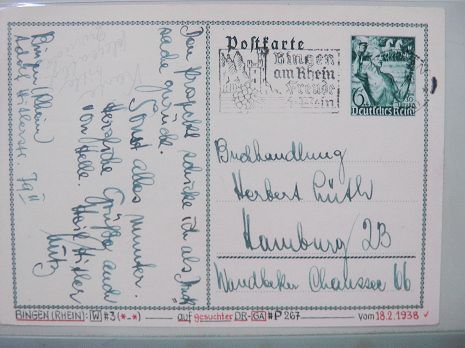 Postkarte
Bingen
am Rhein
Freude
Wein
6
Deutsches Reich
Buchhandlung
Herbert Lüth
Hamburg 23
Wandsbeker Chaussee 66
Den Prospekt schicke ich als
sache zurück.
Sonst alles munter.
Herzliche Grüße auch
von Helle. Heil Hitler
Lütz
Bingen (Rhein)
Adolf Hitlerstr. 79 II
BINGEN (RHEIN): W #3 (*-*) — auf gesuchter DR-GA #P 267 — vom 18.2.1938 ✓